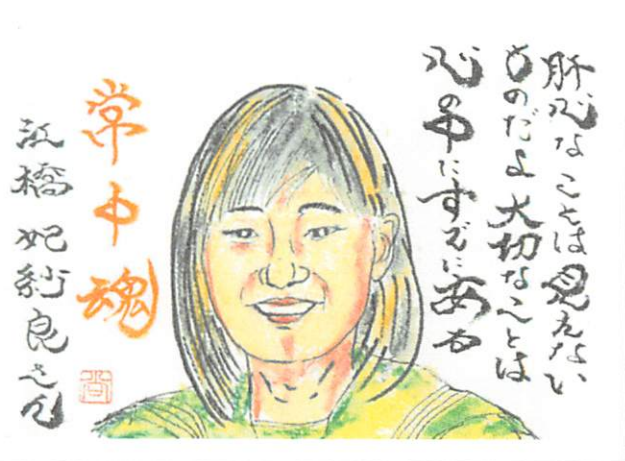 肝心なことは見えない
ものだよ 大切なことは
心の中にすでに在る
常中魂
江橋 妃紗良さん